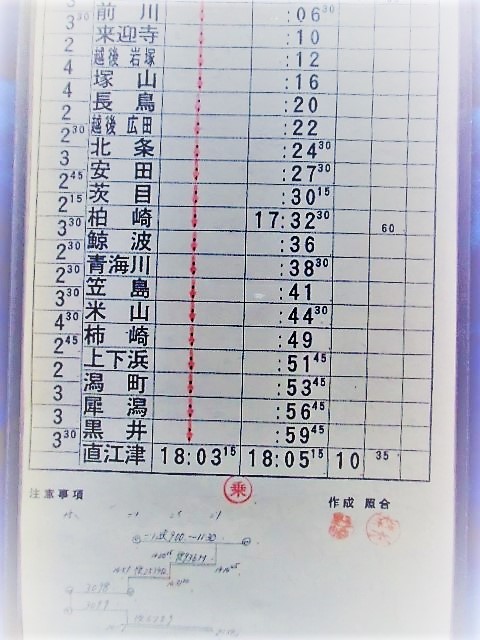 3³⁰ 前川 :06³⁰
2 来迎寺 :10
4 越後岩塚 :12
4 塚山 :16
2 長鳥 :20
2³⁰ 越後広田 :22
3 北条 :24³⁰
2⁴⁵ 安田 :27³⁰
2¹⁵ 茨目 :30¹⁵
3³⁰ 柏崎 17:32³⁰ 60
2³⁰ 鯨波 :36
2³⁰ 青海川 :38³⁰
3³⁰ 笠島 :41
4³⁰ 米山 :44³⁰
2⁴⁵ 柿崎 :49
2 上下浜 :51⁴⁵
3 潟町 :53⁴⁵
3 犀潟 :56⁴⁵
3³⁰ 黒井 :59⁴⁵
直江津 18:03¹⁵ 18:05¹⁵ 10 35
乗
注意事項
作成 照合
3098
3099